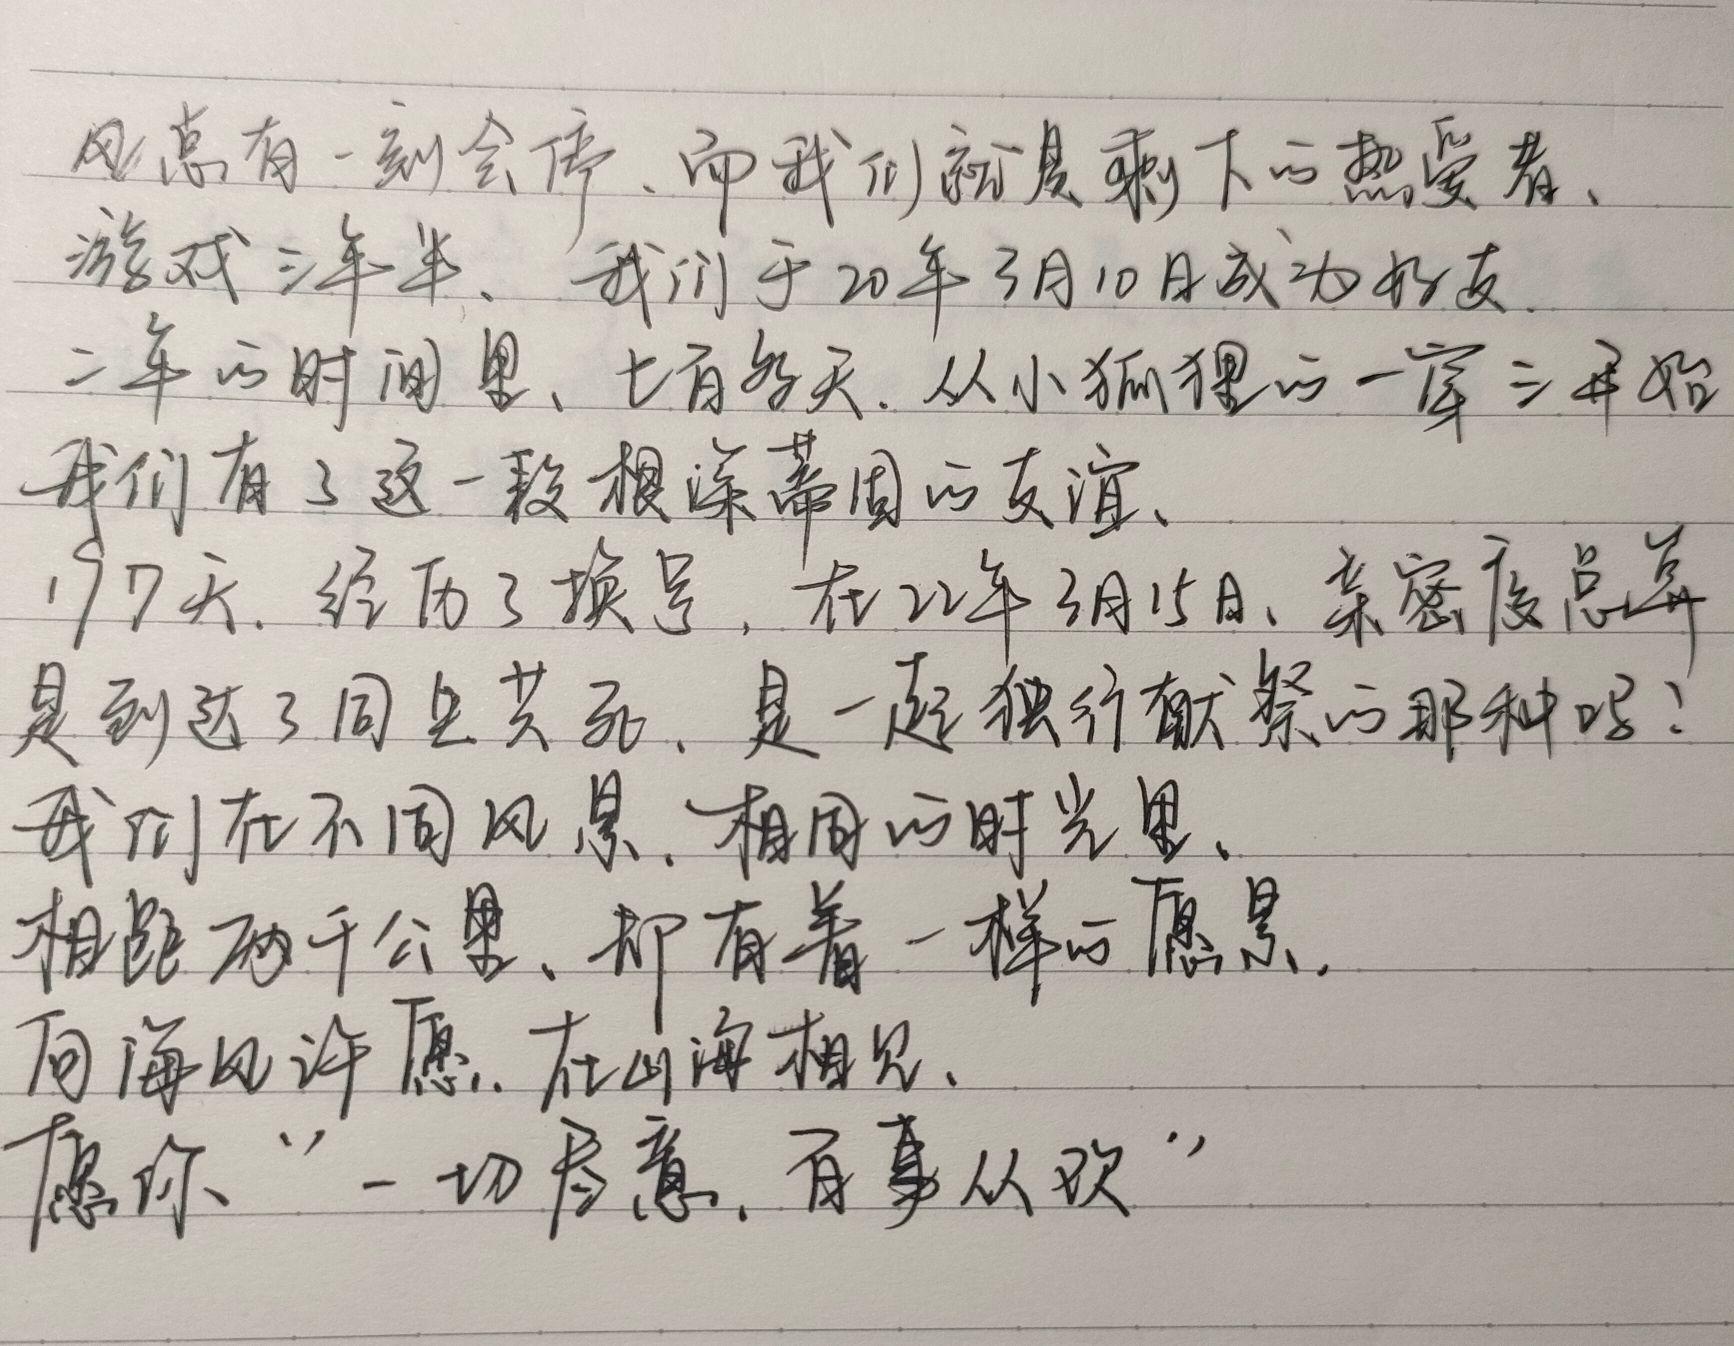 风总有一刻会停、而我们就是剩下的热爱者、
游戏三年半、我们于20年3月10日成为好友.
二年的时间里、七百多天.从小狐狸的一穿三开始
我们有了这一段根深蒂固的友谊、
197天.经历了换号,在22年3月15日、亲密度总算
是到达了同生共死、是一起独行献祭的那种呢!
我们在不同风景、相同的时光里、
相距两千公里、却有着一样的愿景.
向海风许愿.在山海相见、
愿你"一切尽意,百事从欢"